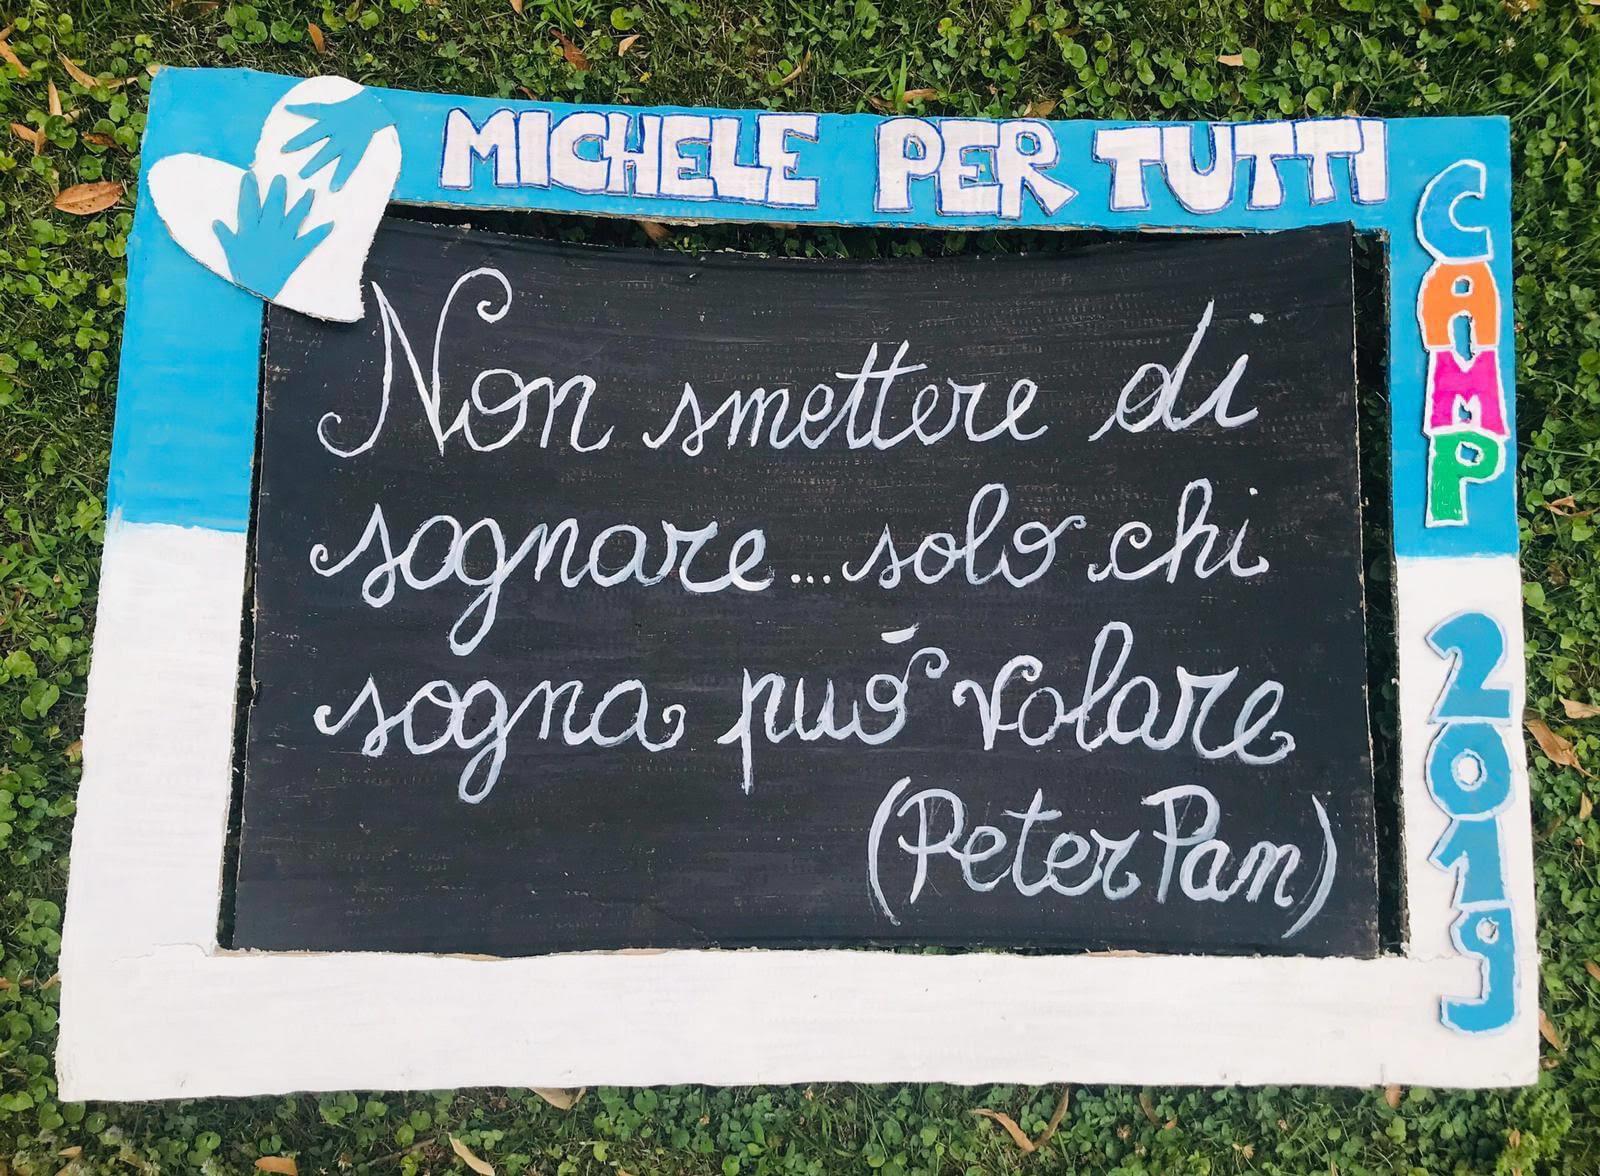 MICHELE PER TUTTI
CAMP 2019
Non smettere di
sognare... solo chi
sogna può volare
(Peter Pan)